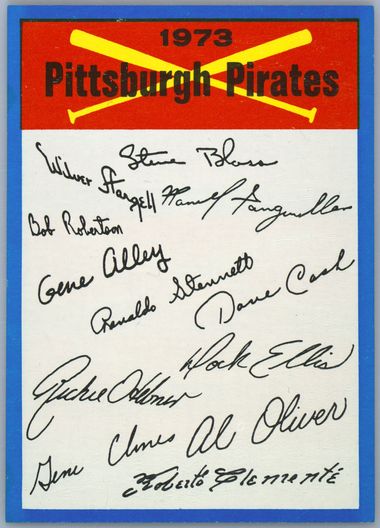 1973
Pittsburgh Pirates
Steve Blass
Wilver Stargell
Manny Sanguillen
Bob Robertson
Gene Alley
Renaldo Stennett
Dave Cash
Dock Ellis
Richie Hebner
Gene Clines
Al Oliver
Roberto Clemente